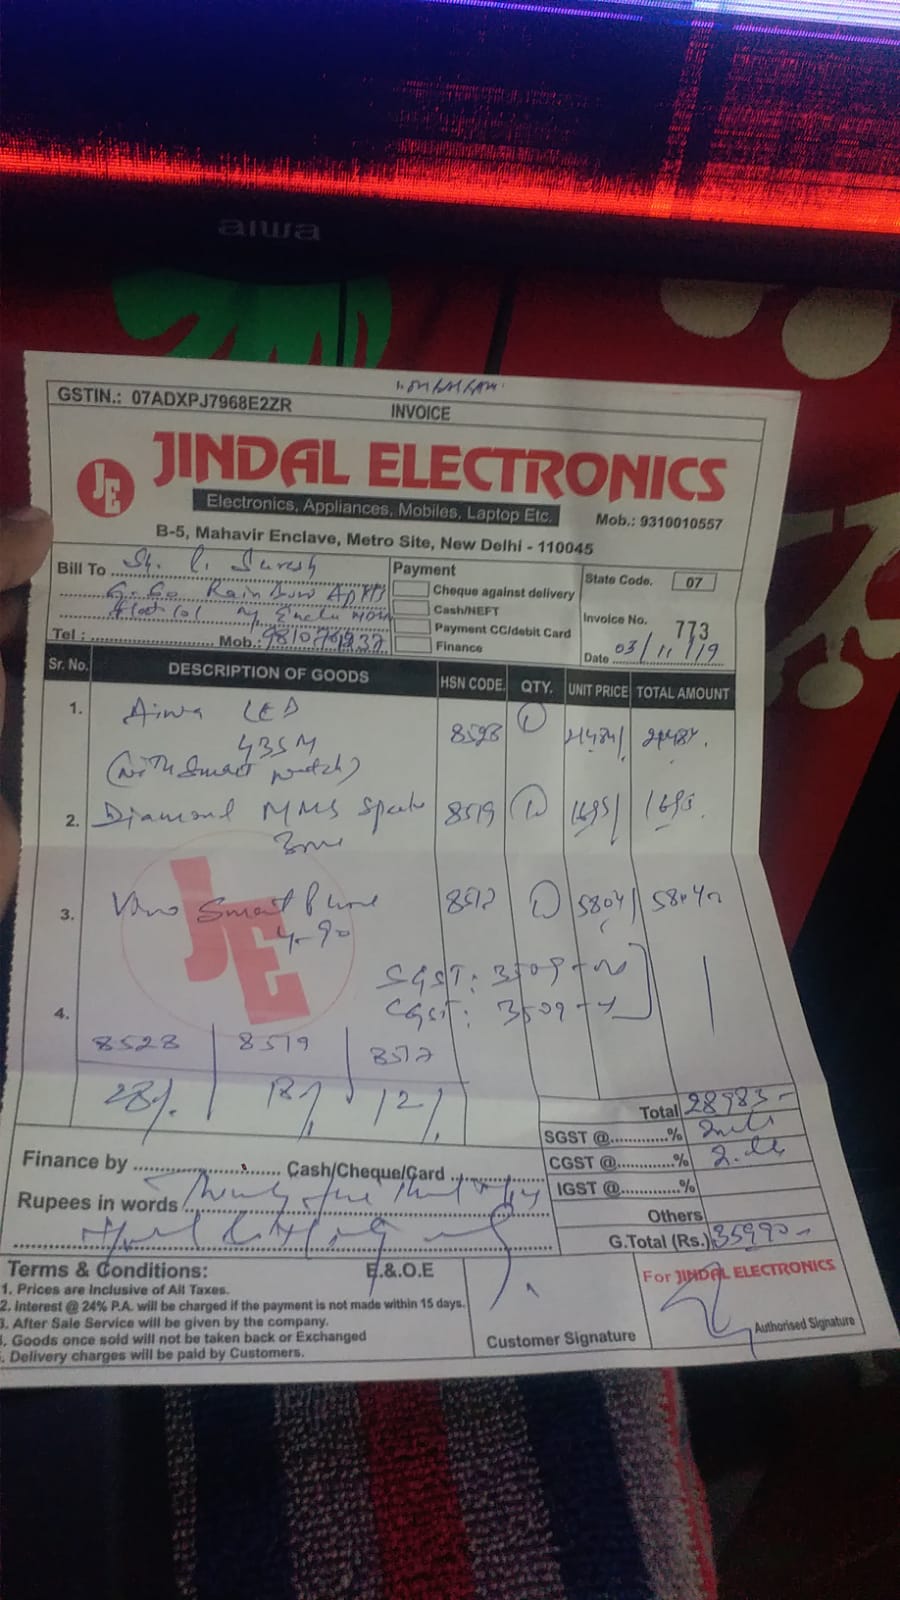 aiwa
GSTIN.: 07ADXPJ7968E2ZR
INVOICE
JE
JINDAL ELECTRONICS
Electronics, Appliances, Mobiles, Laptop Etc.
Mob.: 9310010557
B-5, Mahavir Enclave, Metro Site, New Delhi - 110045
Bill To Sh. Suresh
Payment
State Code. 07
G-60 Rainbow Aptts
Cheque against delivery
Cash/NEFT
Invoice No. 773
Tel : Mob.:
Payment CC/debit Card
Finance
Date 03/11/19
Sr. No. DESCRIPTION OF GOODS HSN CODE. QTY. UNIT PRICE TOTAL AMOUNT
1. Aiwa LED 8528 1 21484/ 21484.
43SM
(with Smart watch)
2. Diamond MMS 8519 1 1695/ 1695.
3. Vivo Smart Phone 8517 1 5804/ 5804
Y-90
SGST: 3509
CGST: 3509
4.
8528 8519 8517
28%. 18% 12%
Total 28983-
SGST @.............%
CGST @.............%
IGST @.............%
Others
G.Total (Rs.) 35990-
Finance by Cash/Cheque/Card
Rupees in words Thirty five
Terms & Conditions: E.&.O.E
1. Prices are Inclusive of All Taxes.
2. Interest @ 24% P.A. will be charged if the payment is not made within 15 days.
3. After Sale Service will be given by the company.
. Goods once sold will not be taken back or Exchanged
. Delivery charges will be paid by Customers.
Customer Signature
For JINDAL ELECTRONICS
Authorised Signature